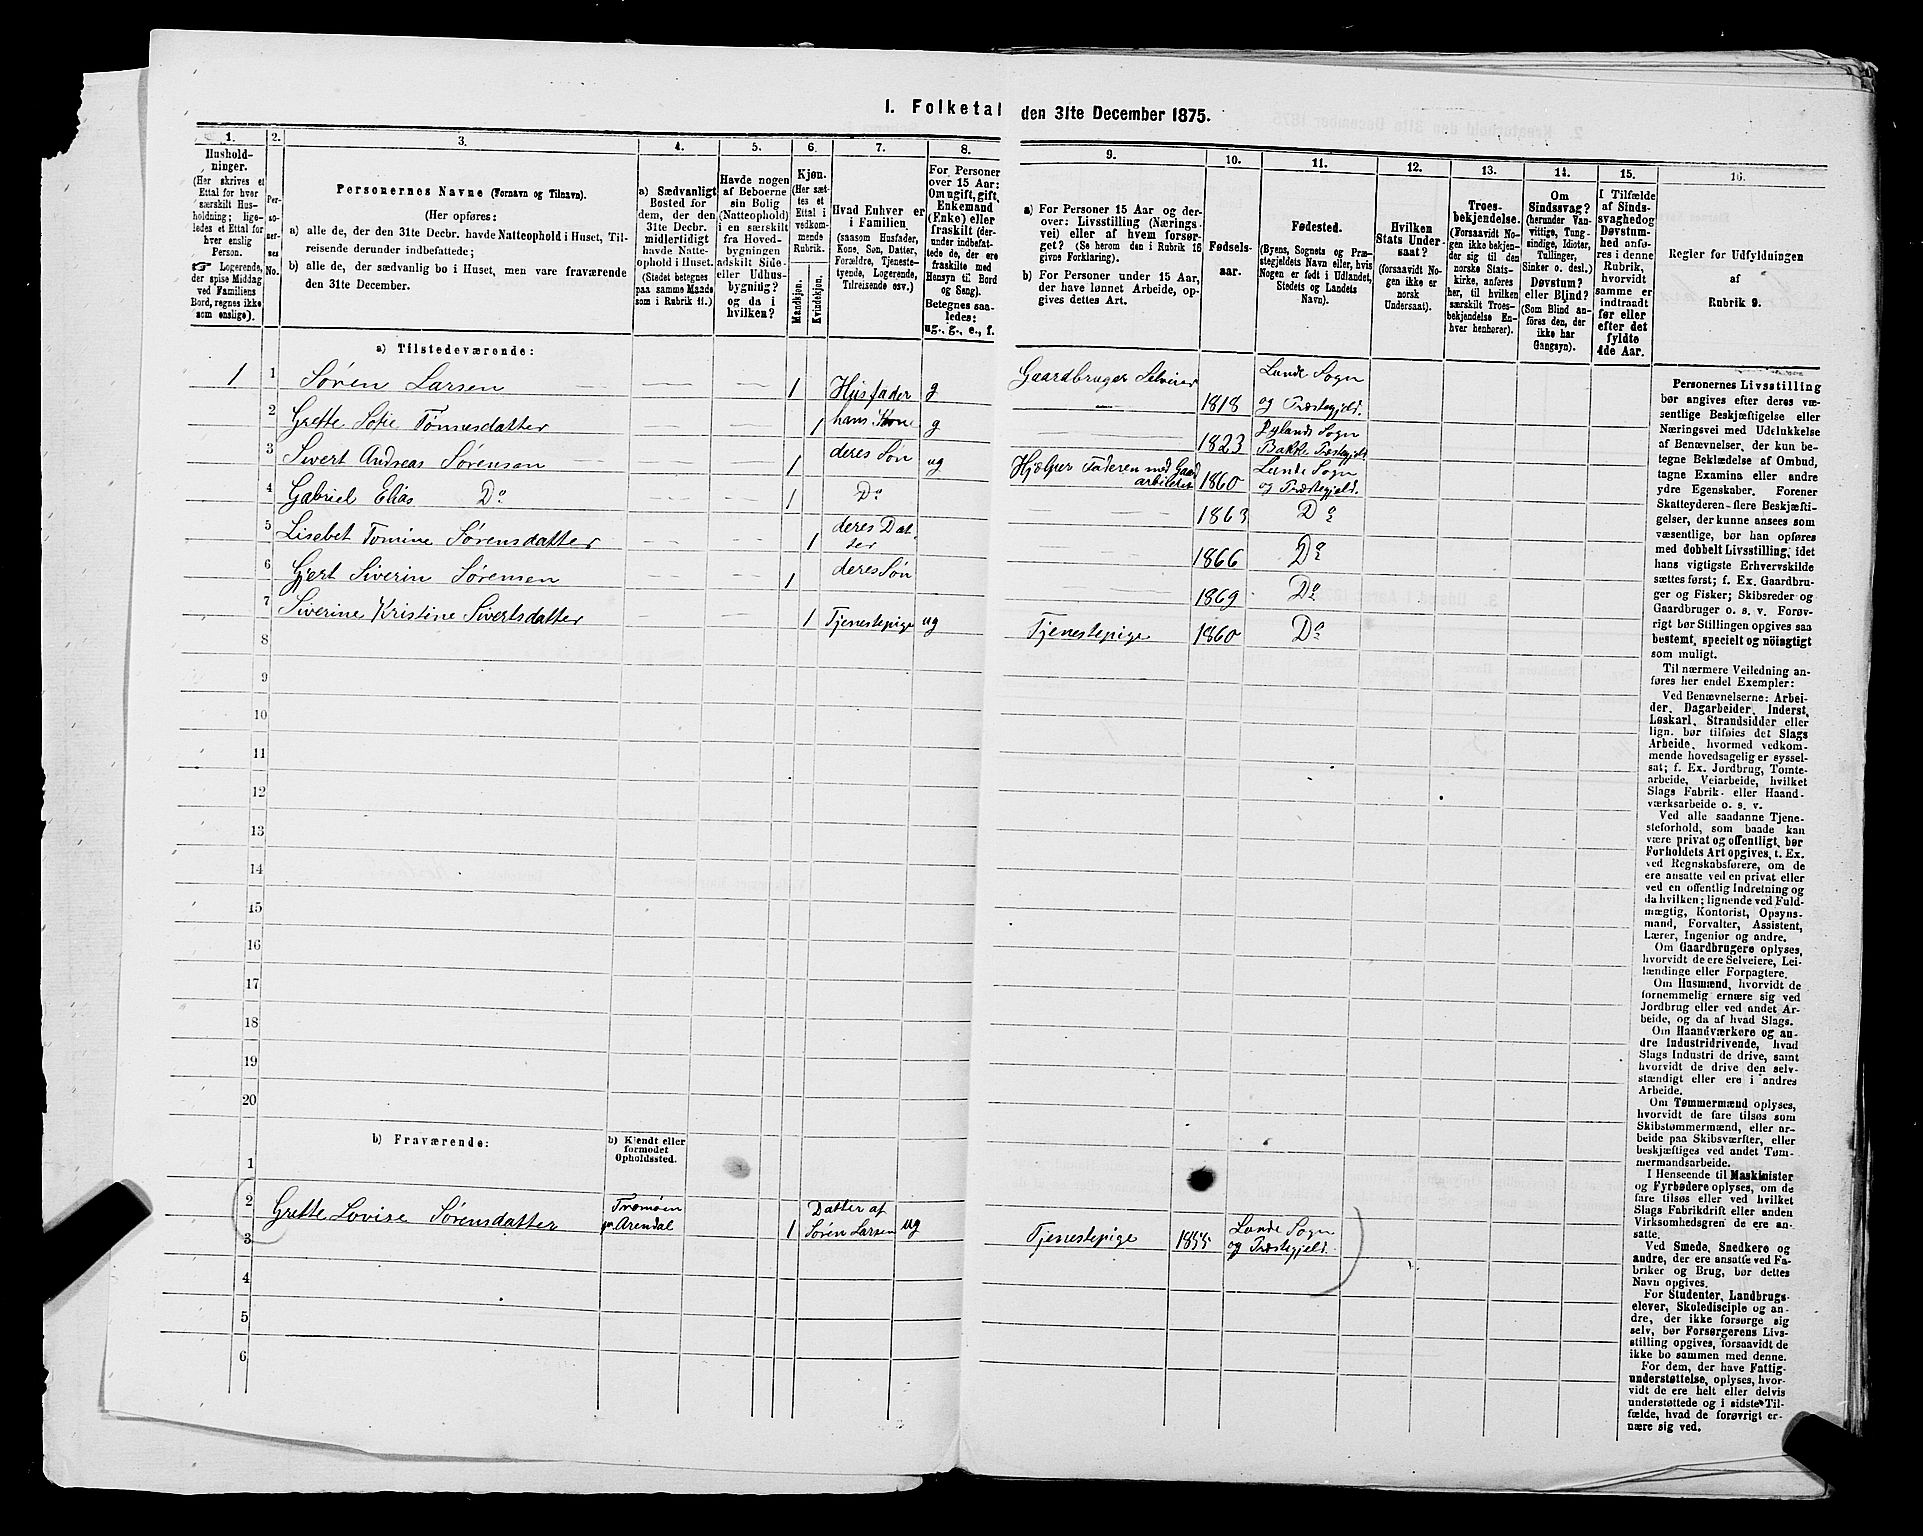 I. Folketal den 31te December 1875.
1.
Hushold-
ninger.
(Her skrives et
Ettal for hver
særskilt Hus-
holdning; lige-
ledes et Ettal for
hver enslig
Person.
☞ Logerende,
der spise Middag
ved Familiens
Bord, regnes ikke
som enslige).
2.
Per-
so-
ner-
nes
No.
3.
Personernes Navne (Fornavn og Tilnavn).
(Her opføres:
a) alle de, der den 31te Decbr. havde Natteophold i Huset, Til-
reisende derunder indbefattede;
b) alle de, der sædvanlig bo i Huset, men vare fraværende
den 31te December.
4.
a) Sædvanligt
Bosted for
dem, der den
31te Decbr.
midlertidigt
havde Natte-
ophold i Huset.
(Stedet betegnes
paa samme Maade
som i Rubrik 11.)
5.
Havde nogen
af Beboerne
sin Bolig
(Natteophold)
i en særskilt
fra Hoved-
bygningen
adskilt Side-
eller Udhus-
bygning?
og da i
hvilken?
6.
Kjøn.
(Her sæt-
tes et
Ettal i
vedkom-
mende
Rubrik.
Mandkjøn.
Kvindekjøn.
7.
Hvad Enhver er
i Familien
(saasom Husfader,
Kone, Søn, Datter,
Forældre, Tjeneste-
tyende, Logerende,
Tilreisende osv.)
8.
For Personer
over 15 Aar:
Om ugift, gift,
Enkemand
(Enke) eller
fraskilt (der-
under indbefat-
tede de, der ere
fraskilte med
Hensyn til Bord
og Seng).
Betegnes saa-
ledes:
ug., g., e., f.
9.
a) For Personer 15 Aar og der-
over: Livsstilling (Nærings-
vei) eller af hvem forsør-
get? (Se herom den i Rubrik 16
givne Forklaring).
b) For Personer under 15 Aar,
der have lønnet Arbeide, op-
gives dettes Art.
10.
Fødsels-
aar.
11.
Fødested.
(Byens, Sognets og Præ-
stegjeldets Navn eller, hvis
Nogen er født i Udlandet,
Stedets og Landets
Navn).
12.
Hvilken
Stats Under-
saat?
(forsaavidt No-
gen ikke er
norsk
Undersaat).
13.
Troes-
bekjendelse.
(Forsaavidt No-
gen ikke bekjen-
der sig til den
norske Stats-
kirke, anføres
her, til hvilken
særskilt Troes-
bekjendelse En-
hver henhører).
14.
Om
Sindssvag?
(herunder Van-
vittige, Tung-
sindige, Idioter,
Tullinger,
Sinker o. desl.)
Døvstum?
eller Blind?
(Som Blind an-
føres den, der
ikke har
Gangsyn).
15.
I Tilfælde
af Sinds-
svaghed og
Døvstum-
hed anfø-
res i denne
Rubrik,
hvorvidt
samme er
indtraadt
før eller
efter det
fyldte
4de Aar.
16.
Regler for Udfyldningen
af
Rubrik 9.
a) Tilstedeværende:
1 1 Søren Larsen 1 Husfader g Gaardbruger Selveier 1818 Lunde Sogn
og Præstegjeld.
2 Grette Sofie Tømesdatter 1 hans Kone g 1823 Fylands Sogn
Bakke Præstegjeld
3 Sivert Andreas Sørensen 1 deres Søn ug Hjælper Faderen med Gaard
arbeidet 1860 Lunde Sogn
og Præstegjeld.
4 Gabriel Elias Do 1 Do 1863 Do
5 Lisebet Tomine Sørensdatter 1 deres Dat-
ter 1866 Do
6 Gjert Siverin Sørensen 1 deres Søn 1869 Do
7 Siverine Kristine Sivertsdatter 1 Tjenestepige ug Tjenestepige 1860 Do
8
9
10
11
12
13
14
15
16
17
18
19
20
b) Fraværende:
b) Kjendt eller
formodet
Opholdssted.
1
2 Grette Lovise Sørensdatter Tromøen
pr Arendal 1 Datter af
Søren Larsen ug Tjenestepige 1855 Lunde Sogn
og Præstegjeld.
3
4
5
6
Personernes Livsstilling
bør angives efter deres væ-
sentlige Beskjæftigelse eller
Næringsvei med Udelukkelse
af Benævnelser, der kun be-
tegne Beklædelse af Ombud,
tagne Examina eller andre
ydre Egenskaber. Forener
Skatteyderen flere Beskjæfti-
gelser, der kunne ansees som
væsentlige, bør han opføres
med dobbelt Livsstilling, idet
hans vigtigste Erhvervskilde
sættes først; f. Ex. Gaardbru-
ger og Fisker; Skibsreder og
Gaardbruger o. s. v. Forøv-
rigt bør Stillingen opgives saa
bestemt, specielt og nöiagtigt
som muligt.
Til nærmere Veiledning an-
føres her endel Exempler:
Ved Benævnelserne: Arbei-
der, Dagarbeider, Inderst,
Løskarl, Strandsidder eller
lign. bør tilføies det Slags
Arbeide, hvormed vedkom-
mende hovedsagelig er syssel-
sat; f. Ex. Jordbrug, Tomte-
arbeide, Veiarbeide, hvilket
Slags Fabrik- eller Haand-
værksarbeide o. s. v.
Ved alle saadanne Tjene-
steforhold, som baade kan
være privat og offentligt, bør
Forholdets Art opgives, t. Ex.
ved Regnskabsførere, om de
ere ansatte ved en privat eller
ved en offentlig Indretning og
da hvilken; lignende ved Fuld-
mægtig, Kontorist, Opsyns-
mand, Forvalter, Assistent,
Lærer, Ingeniør og andre.
Om Gaardbrugere oplyses,
hvorvidt de ere Selveiere, Lei-
lændinge eller Forpagtere.
Om Husmænd, hvorvidt de
fornemmelig ernære sig ved
Jordbrug eller ved andet Ar-
beide, og da af hvad Slags.
Om Haandværkere og an-
dre Industridrivende, hvad
Slags Industri de drive, samt
hvorvidt de drive den selv-
stændigt eller ere i andres
Arbeide.
Om Tømmermænd oplyses,
hvorvidt de fare tilsøs som
Skibstømmermænd, eller ar-
beide paa Skibsværfter, eller
beskjæftiges ved andet Tøm-
mermandsarbeide.
I Henseende til Maskinister
og Fyrbødere oplyses, om de
fare tilsøs eller ved hvilket
Slags Fabrikdrift eller anden
Virksomhedsgren de ere an-
satte.
Ved Smede, Snedkere og
andre, der ere ansatte ved Fa-
briker og Brug, bør dettes
Navn opgives.
For Studenter, Landbrugs-
elever, Skoledisciple og an-
dre, der ikke forsørge sig
selv, bør Forsørgerens Livs-
stilling opgives, forsaavidt de
ikke bo sammen med denne.
For dem, der have Fattig-
understøttelse, oplyses, hvor-
vidt de ere helt eller delvis
understøttede og i sidste Til-
fælde, hvad de forøvrigt er-
nære sig ved.